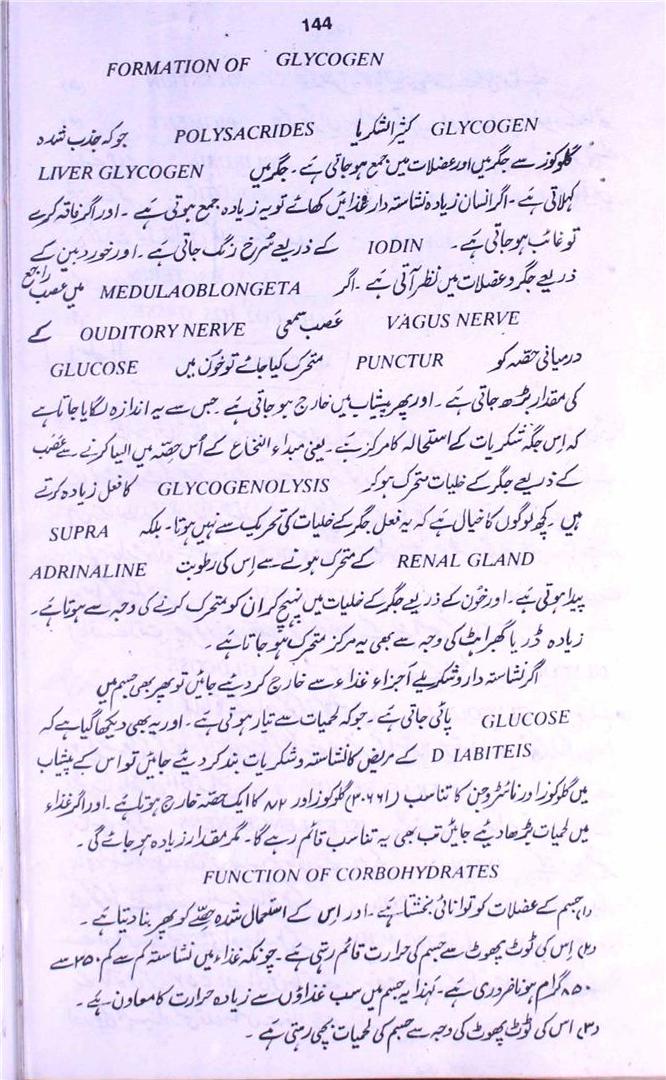 144
FORMATION OF GLYCOGEN
GLYCOGEN کثیر الشکریا POLYSACRIDES جو کہ جذب شدہ
گلوکوز سے جگر میں اور عضلات میں جمع ہو جاتی ہے ۔ جگر میں LIVER GLYCOGEN
کہلاتی ہے ۔ اگر انسان زیادہ نشاستہ دار غذائیں کھائے تو یہ زیادہ جمع ہوتی ہے ۔ اور اگر فاقہ کرے
تو غائب ہو جاتی ہے ۔ IODIN کے ذریعے سُرخ رنگ جاتی ہے ۔ اور خوردبین کے
ذریعے جگر و عضلات میں نظر آتی ہے ۔ اگر MEDULAOBLONGETA میں عصب راجع
VAGUS NERVE عَصَب سمعی OUDITORY NERVE کے
درمیانی حصّہ کو PUNCTUR متحرّک کیا جائے تو خُون میں GLUCOSE
کی مقدار بڑھ جاتی ہے ۔ اور پھر پیشاب میں خارج ہو جاتی ہے ۔ جس سے یہ اندازہ لگایا جاتا ہے
کہ اِس جگہ شکریات کے استحالہ کا مرکز ہے ۔ یعنی مبداء النخاع کے اُس حصّہ میں ایسا کرنے سے عَصَب
کے ذریعے جگر کے خلیات متحرّک ہو کر GLYCOGENOLYSIS کا فعل زیادہ کرتے
ہیں ۔ کچھ لوگوں کا خیال ہے کہ یہ فعل جگر کے خلیات کی تحریک سے نہیں ہوتا ۔ بلکہ SUPRA
RENAL GLAND کے متحرّک ہونے سے اِس کی رطوبت ADRINALINE
پیدا ہوتی ہے ۔ اور خُون کے ذریعے جگر کے خلیات میں پہنچ کر ان کو متحرّک کرنے کی وجہ سے ہوتا ہے ۔
زیادہ ڈر یا گھبراہٹ کی وجہ سے بھی یہ مرکز متحرّک ہو جاتا ہے ۔
اگر نشاستہ دار و شکریلے اَجزاء غذاء سے خارج کر دیئے جائیں تو پھر بھی جسم میں
GLUCOSE پائی جاتی ہے ۔ جو کہ لحمیات سے تیار ہوتی ہے ۔ اور یہ بھی دیکھا گیا ہے کہ
D LABITEIS کے مریض کا نشاستہ و شکریات بند کر دیئے جائیں تو اس کے پیشاب
میں گلوکوز اور نائٹروجن کا تناسب (۳۰۶۶۱) گلوکوز اور ۸۲ کا ایک حصّہ خارج ہوتا ہے ۔ اور اگر غذاء
میں لحمیات بڑھا دیئے جائیں تب بھی یہ تناسب قائم رہے گا ۔ مگر مقدار زیادہ ہو جائے گی ۔
FUNCTION OF CORBOHYDRATES
(۱) جسم کے عضلات کو توانائی بخشتا ہے ۔ اور اِس کے استعمال شدہ حِصّے کو پھر بنا دیتا ہے ۔
(۲) اِس کی ٹوٹ پھوٹ سے جسم کی حرارت قائم رہتی ہے ۔ چونکہ غذاء میں نشاستہ کم سے کم ۲۵۰ سے
۸۵۰ گرام ہونا ضروری ہے ۔ لہٰذا یہ جسم میں سب غذاؤں سے زیادہ حرارت کا معاون ہے ۔
(۳) اس کی ٹوٹ پھوٹ کی وجہ سے جسم کی لحمیات بچی رہتی ہے ۔